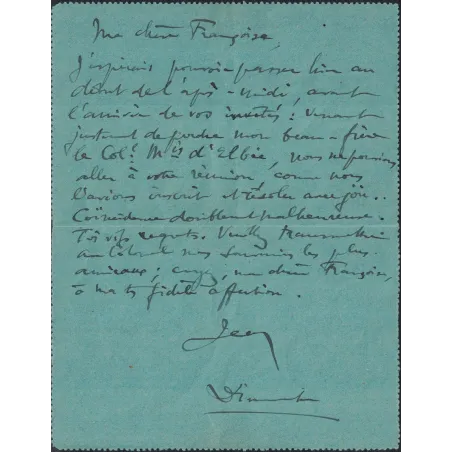 Ma chère Françoise,
J'espérais pouvoir passer hier au
début de l'après-midi, avant
l'arrivée de vos invités : venant
justement de perdre mon beau-frère
le Col. Mis d'Elbée, nous ne pouvions
aller à votre réunion, comme nous
l'avions inscrit et résolu avec joie..
Coïncidence doublement malheureuse.
Très vifs regrets. Veuillez transmettre
au Colonel nos souvenirs les plus
amicaux ; croyez, ma chère Françoise,
à ma très fidèle affection.
Jean
Dimanche